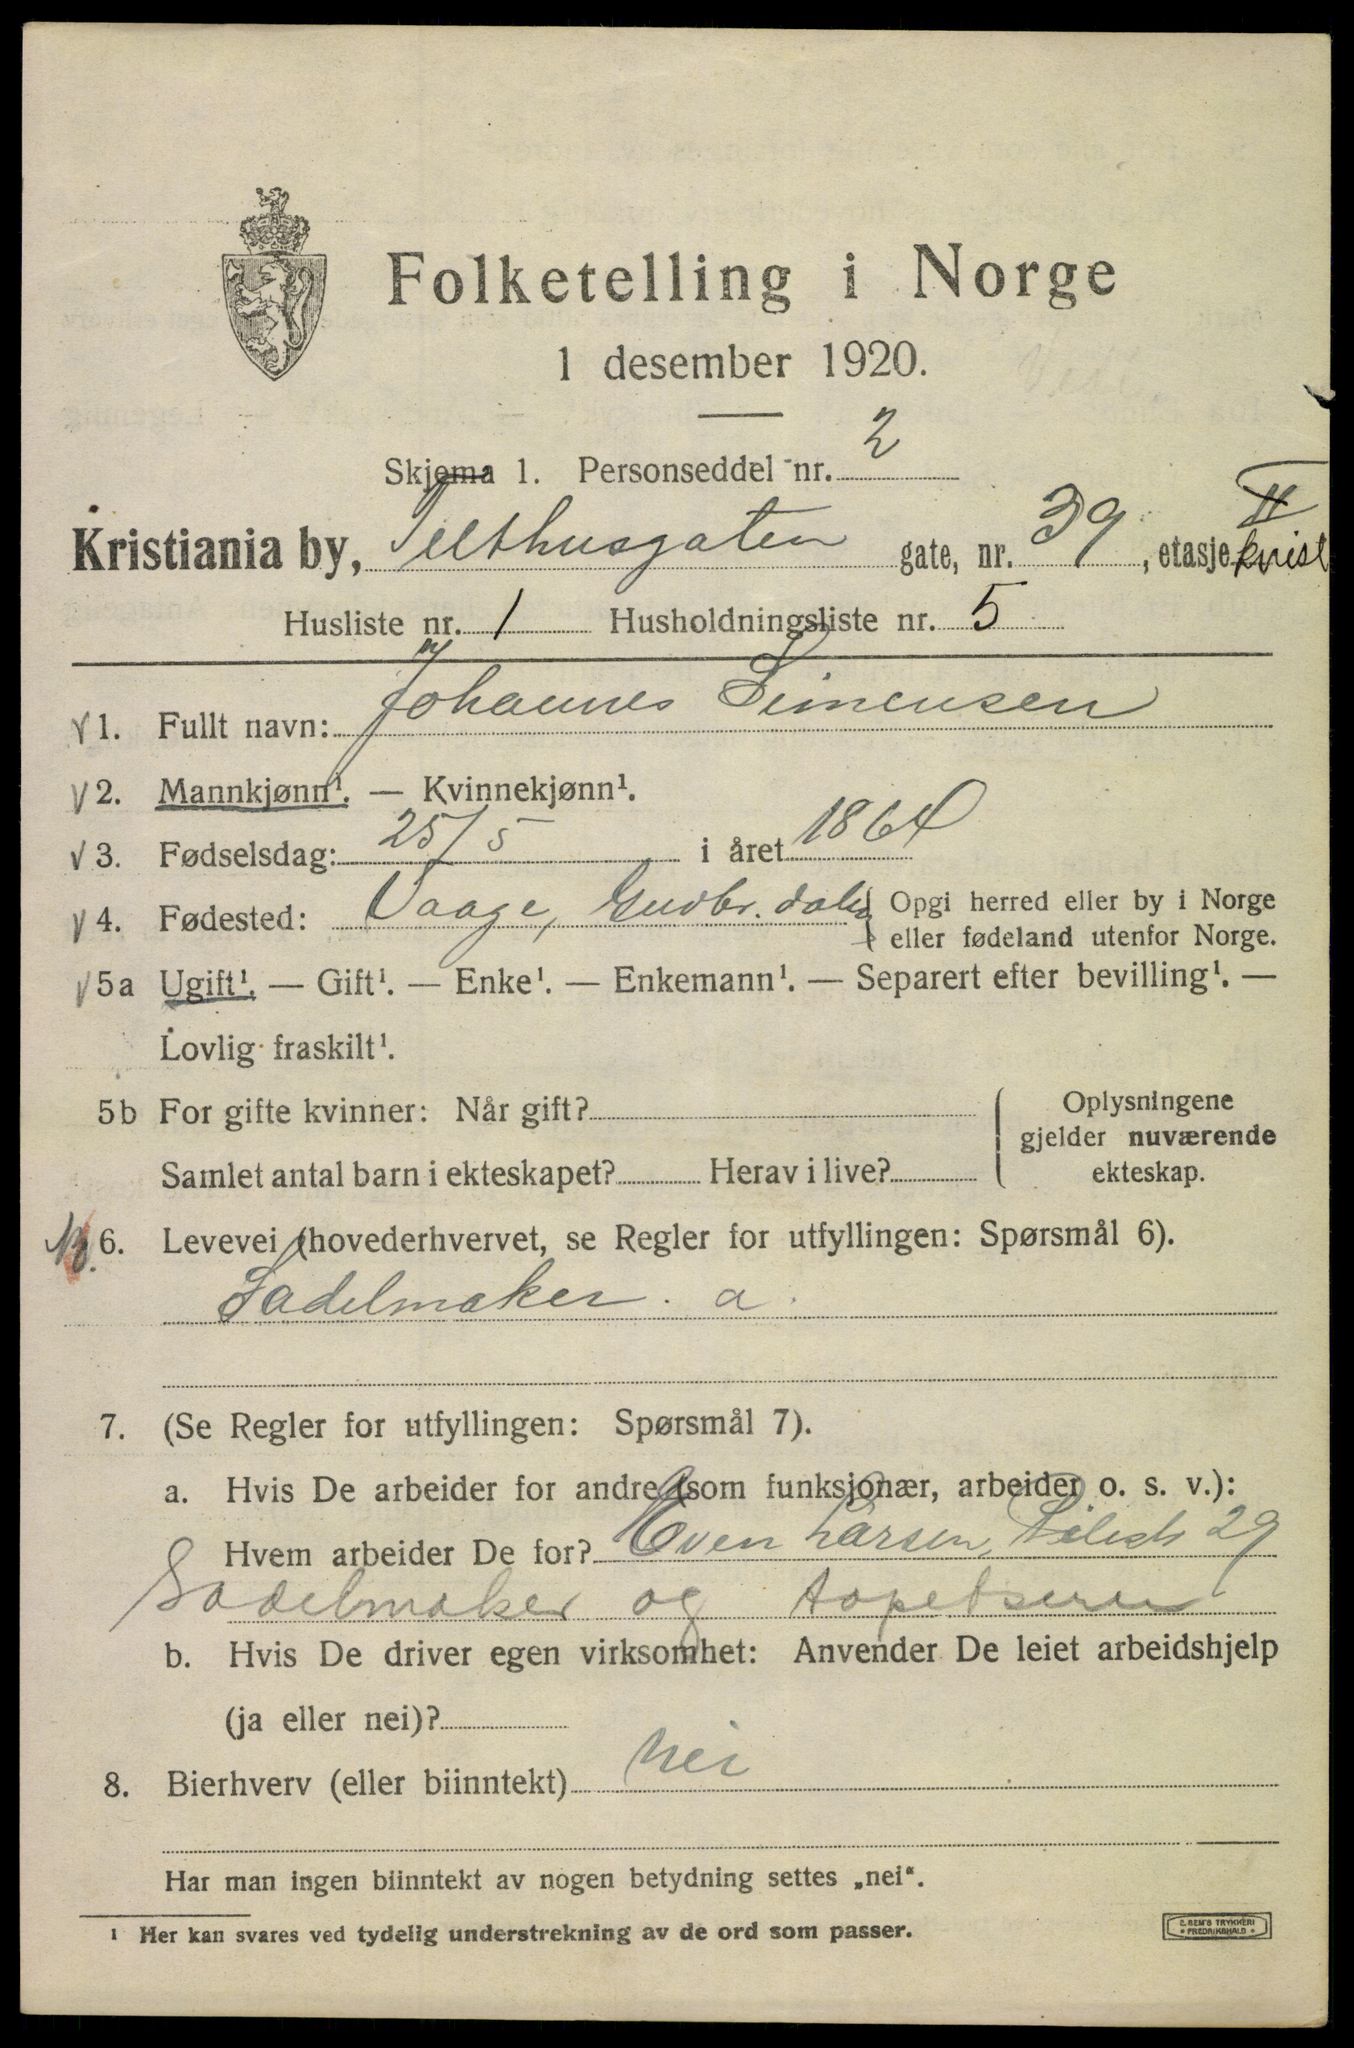 Folketelling i Norge
1 desember 1920.
Skjema 1. Personseddel nr. 2
Kristiania by, Telthusgaten gate, nr. 39, etasje II kvist
Husliste nr. 1 Husholdningsliste nr. 5
√ 1. Fullt navn: Johannes Simensen
√ 2. Mannkjønn¹. — Kvinnekjønn¹.
√ 3. Fødselsdag: 25/5 i året 1864
√ 4. Fødested: Vaage, Gudbr. dalen Opgi herred eller by i Norge
eller fødeland utenfor Norge.
√ 5a Ugift¹. — Gift¹. — Enke¹. — Enkemann¹. — Separert efter bevilling¹. —
Lovlig fraskilt¹.
5b For gifte kvinner: Når gift?
Samlet antal barn i ekteskapet? Herav i live?
Oplysningene
gjelder nuværende
ekteskap.
6. Levevei (hovederhvervet, se Regler for utfyllingen: Spørsmål 6).
Sadelmaker. a.
7. (Se Regler for utfyllingen: Spørsmål 7).
a. Hvis De arbeider for andre (som funksjonær, arbeider o. s. v.):
Hvem arbeider De for? Even Larsen, 29
Sadelmaker og
b. Hvis De driver egen virksomhet: Anvender De leiet arbeidshjelp
(ja eller nei)?
8. Bierhverv (eller biinntekt) Nei
Har man ingen biinntekt av nogen betydning settes „nei“.
¹ Her kan svares ved tydelig understrekning av de ord som passer.
E. SEM'S TRYKKERI
FREDRIKSHALD